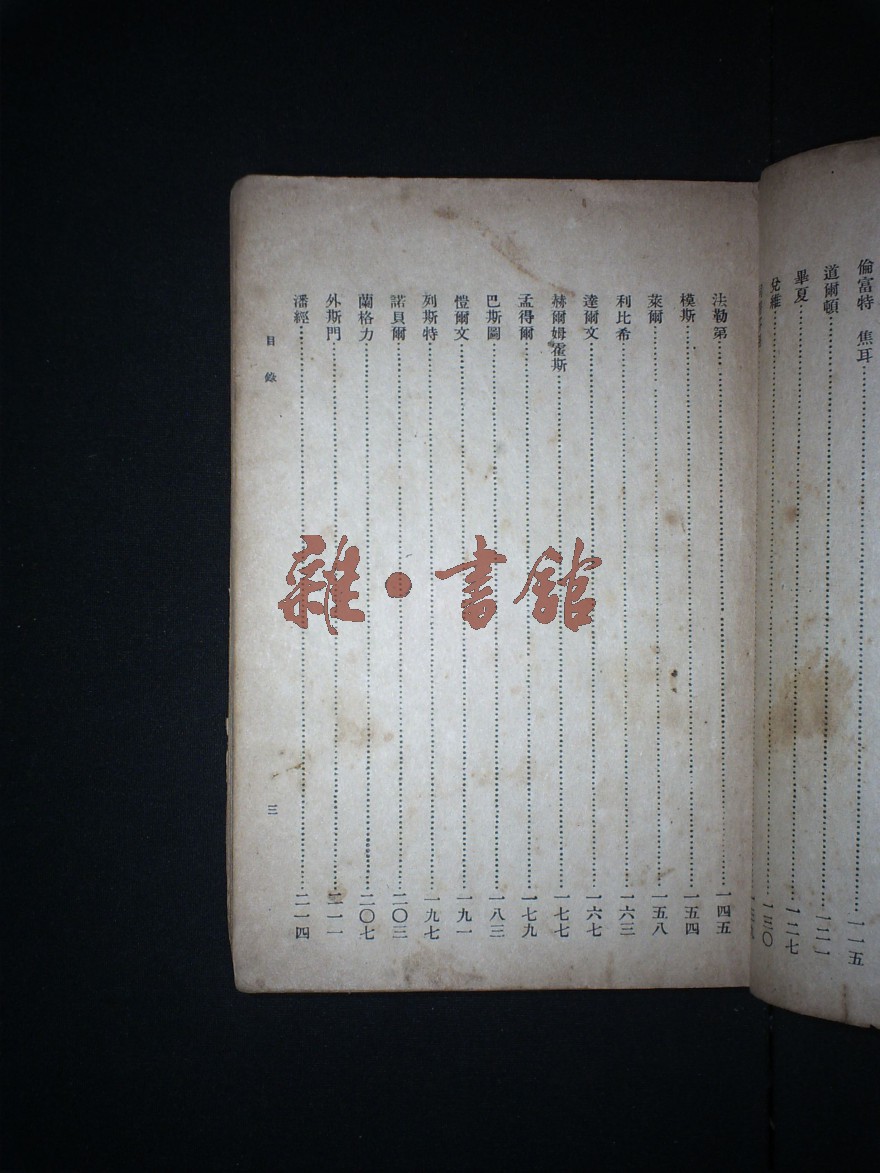 倫富特 焦耳……一一五
道爾頓……一二一
畢夏……一二七
兌維……一三〇
法勒第……一四五
模斯……一五四
萊爾……一五八
利比希……一六三
達爾文……一六七
赫爾姆霍斯……一七七
孟得爾……一七九
巴斯圖……一八三
愷爾文……一九一
列斯特……一九七
諾貝爾……二〇三
蘭格力……二〇七
外斯門……二一一
潘經……二一四
目錄
三
雜·書館